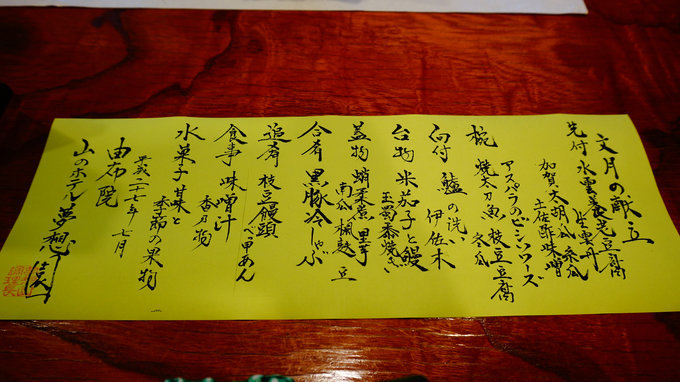 文月の献立
先付 水雲養老豆腐
生雲丹
加賀太胡瓜 糸瓜
土佐酢味噌
アスパラのピンツーズ
椀 焼太刀魚 枝豆豆腐
冬瓜
向付 鱸の洗い
伊佐木
台物 米茄子と鰻
玉蜀黍焼き
蓋物 蛸柔煮 里芋
南瓜 楓麩 豆
合肴 黒豚冷しゃぶ
追肴 枝豆饅頭
べっ甲あん
食事 味噌汁
香乃物
水菓子 甘味と
季節の果物
平成二十七年 七月
由布院
山のホテル 夢想